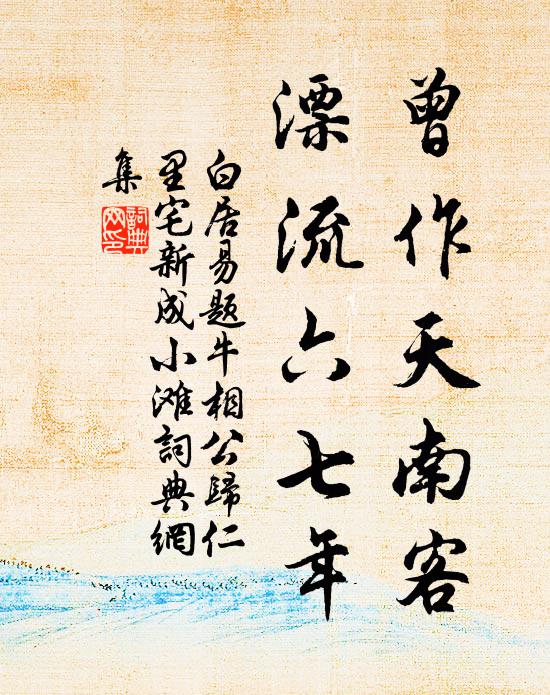 曾作天南客
漂流六七年
白居易題牛相公歸仁
里宅新成小滩詞典網
集
詞典
网印